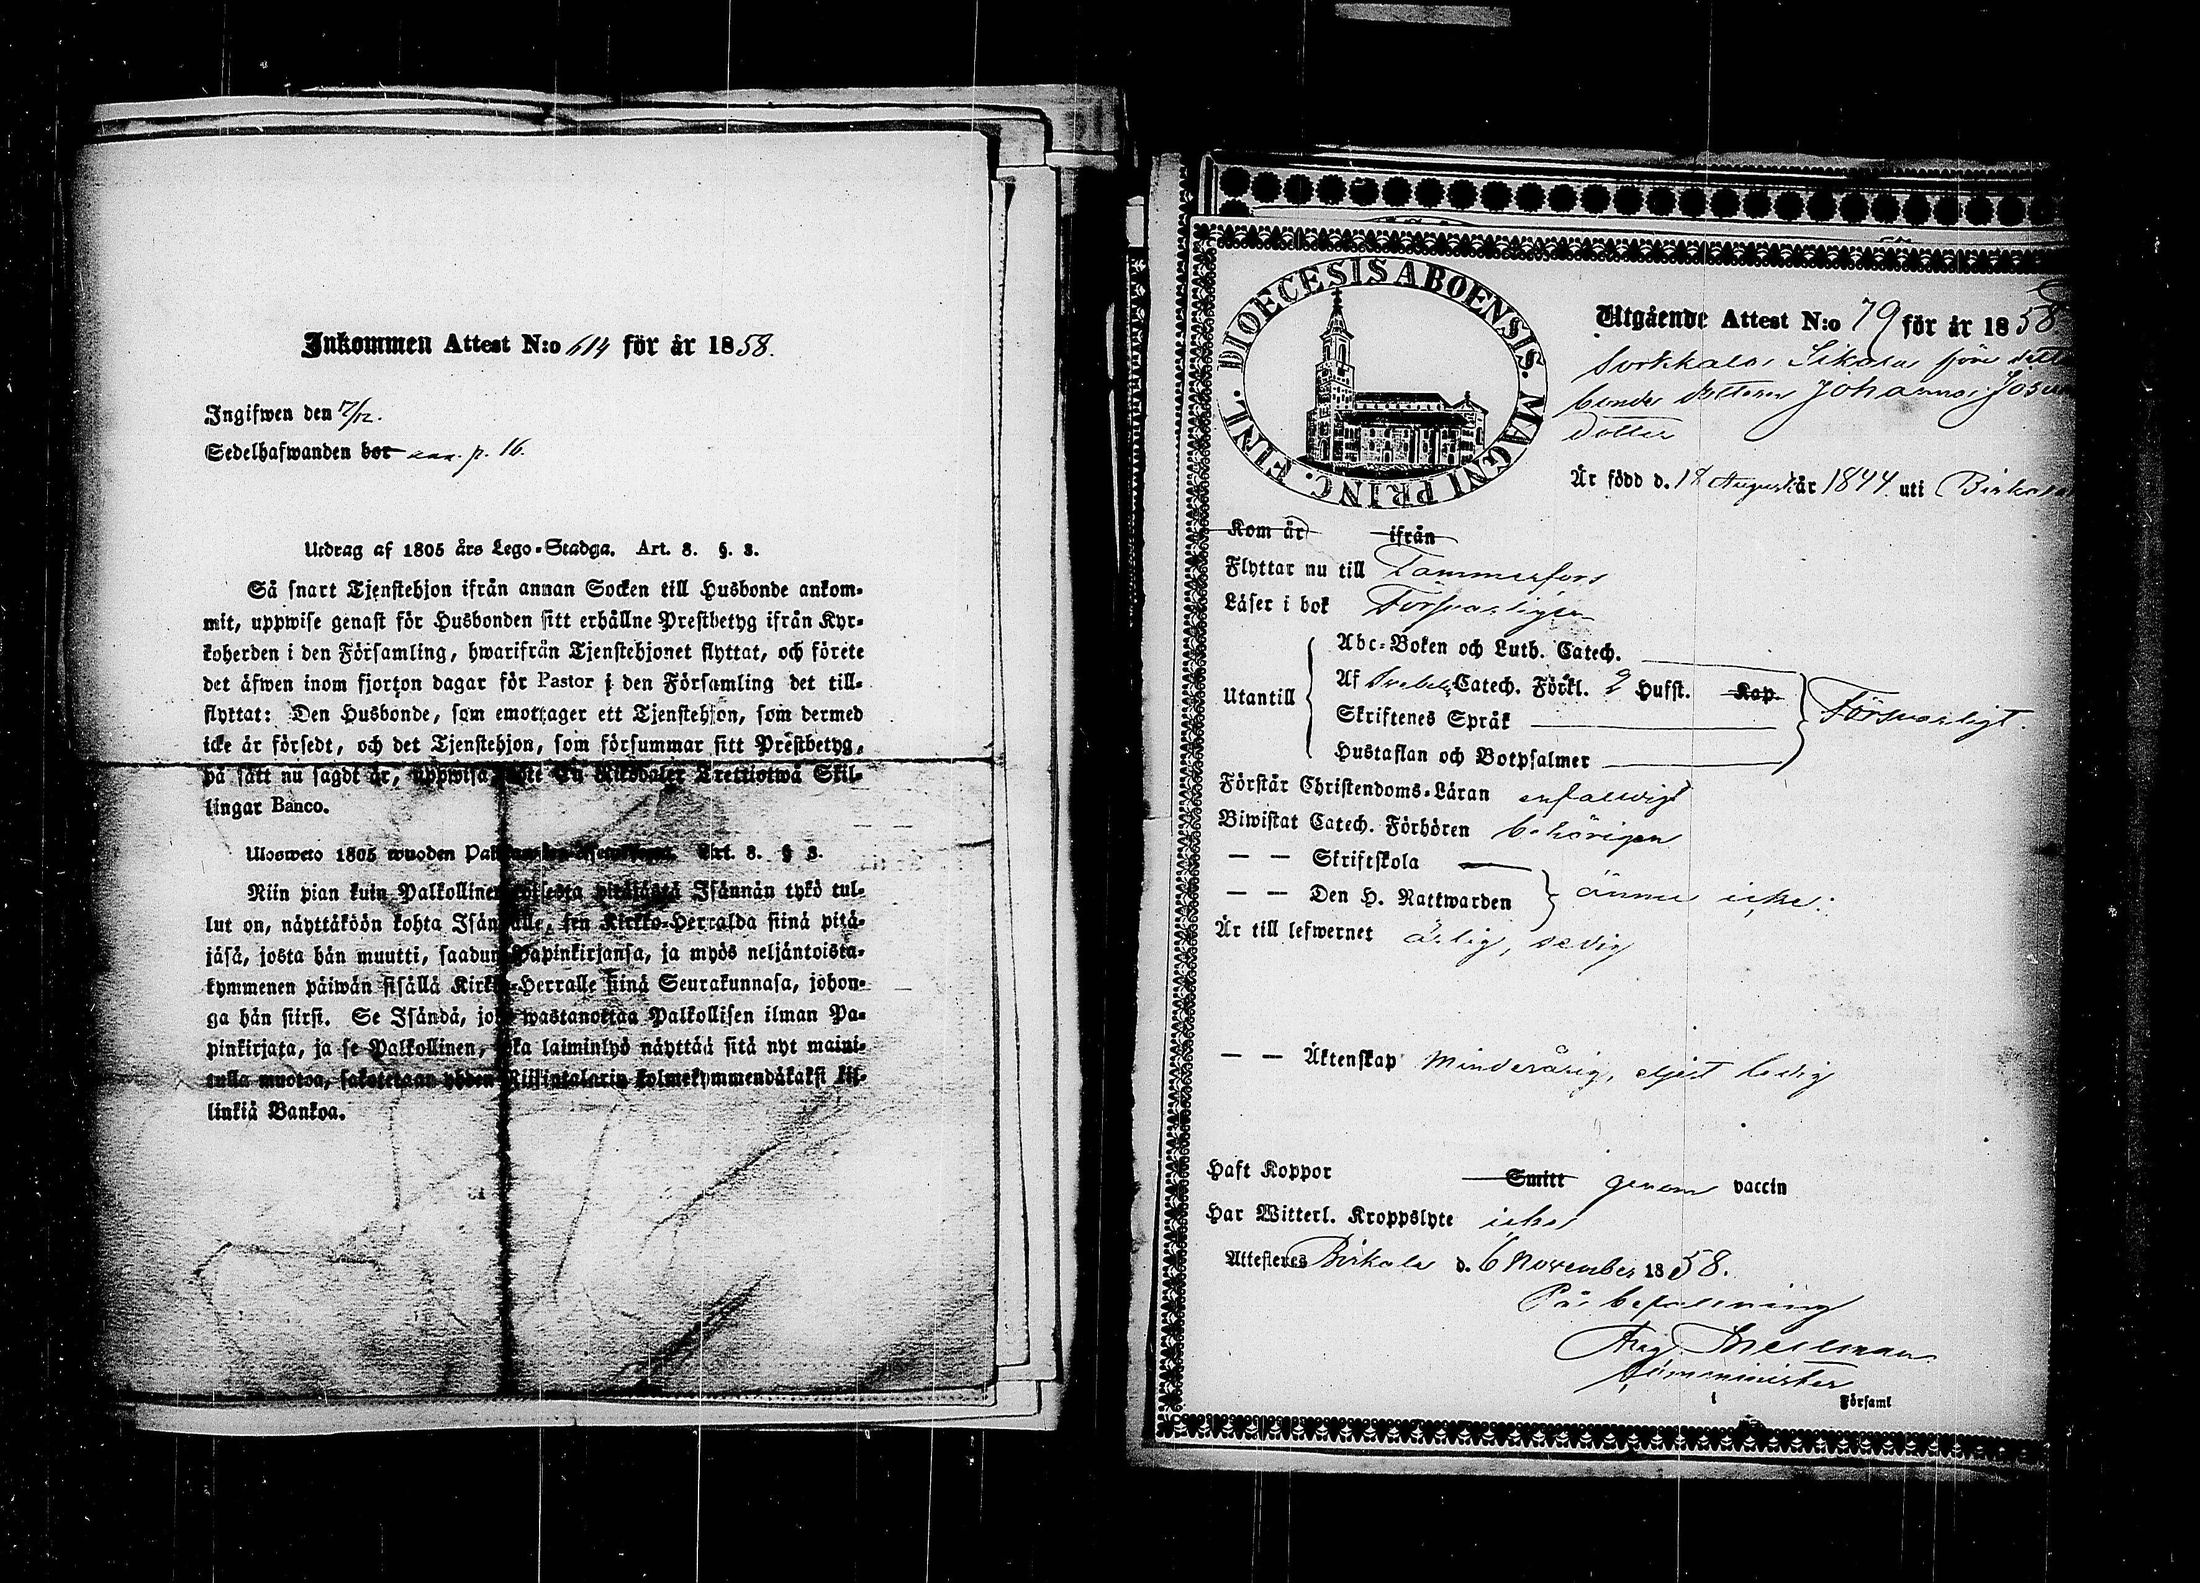 Inkommen Attest N:o 614 för år 1858.
Ingifwen den 7/12.
Sedelhafwanden bor p. 16.
Utdrag af 1805 års Lego-Stadga. Art. 8. §. 3.
Så snart Tjenstehjon ifrån annan Socken till Husbonde ankom-
mit, uppwise genast för Husbonden sitt erhållne Prestbetyg ifrån Kyr-
koherden i den Församling, hwarifrån Tjenstehjonet flyttat, och förete
det äfwen inom fjorton dagar för Pastor i den Församling det till-
flyttat: Den Husbonde, som emottager ett Tjenstehjon, som dermed
icke är försedt, och det Tjenstehjon, som försummar sitt Prestbetyg,
på sätt nu sagdt är, uppwisa, böte En Riksdaler Trettiotwå Skil-
lingar Banco.
Ulosweto 1805 wuoden Art. 8. § 3.
Niin pian kuin Palkollinen toisesta pitäjästä Isännän tykö tul-
lut on, näyttäköön kohta Isännälle, sen Kirkko-Herralda siinä pitä-
jäsä, josta hän muutti, saadun Papinkirjansa, ja myös neljäntoista-
kymmenen päiwän sisällä Kirkko-Herralle siinä Seurakunnasa, johon-
ga hän siirsi. Se Isändä, joka wastanottaa Palkollisen ilman Pa-
pinkirjata, ja se Palkollinen, joka laiminlyö näyttää sitä nyt maini-
tulla muotoa, sakotetaan yhden Riikintalarin kolmekymmendäkaksi kil-
linkiä Bankoa.
DIOECESIS ABOENSIS. MAGNI PRINC. FINL.
Utgående Attest N:o 79 för år 1858
Sorkkala Sikala före detta
bonde dottern Johanna Josefs
dotter
Är född d. 18 Augusti år 1844 uti Birkala
Kom år ifrån
Flyttar nu till Tammerfors
Läser i bok Försvarligen
Utantill
Abc-Boken och Luth. Catech.
Af Svebelii Catech. Förkl. 2 Hufst. Kap.
Skriftenes Språk
Hustaflan och Botpsalmer
Försvarligt.
Förstår Christendoms-Läran enfaldigt
Biwistat Catech. Förhören behörigen
— — Skriftskola —
— — Den H. Nattwarden ännu icke.
Är till lefwernet ärlig, sedig
— — Äktenskap Minderårig, eljest ledig
Haft Koppor Smitt genom vaccin
Har Witterl. Kroppslyte icke
Attesteres Birkala d. 6 November 1858.
På befallning
Aug.
Comminister
i Församl